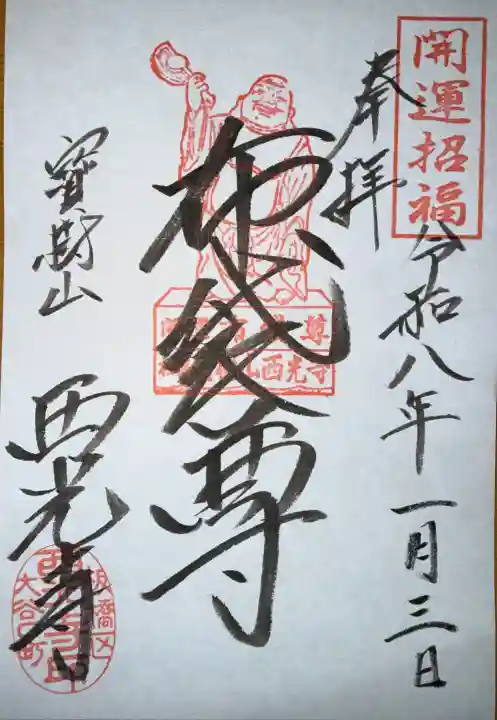 開運招福
奉拝
令和八年一月三日
布袋尊
寳樹山
西光寺
尊
西光寺
板橋区
大谷口町